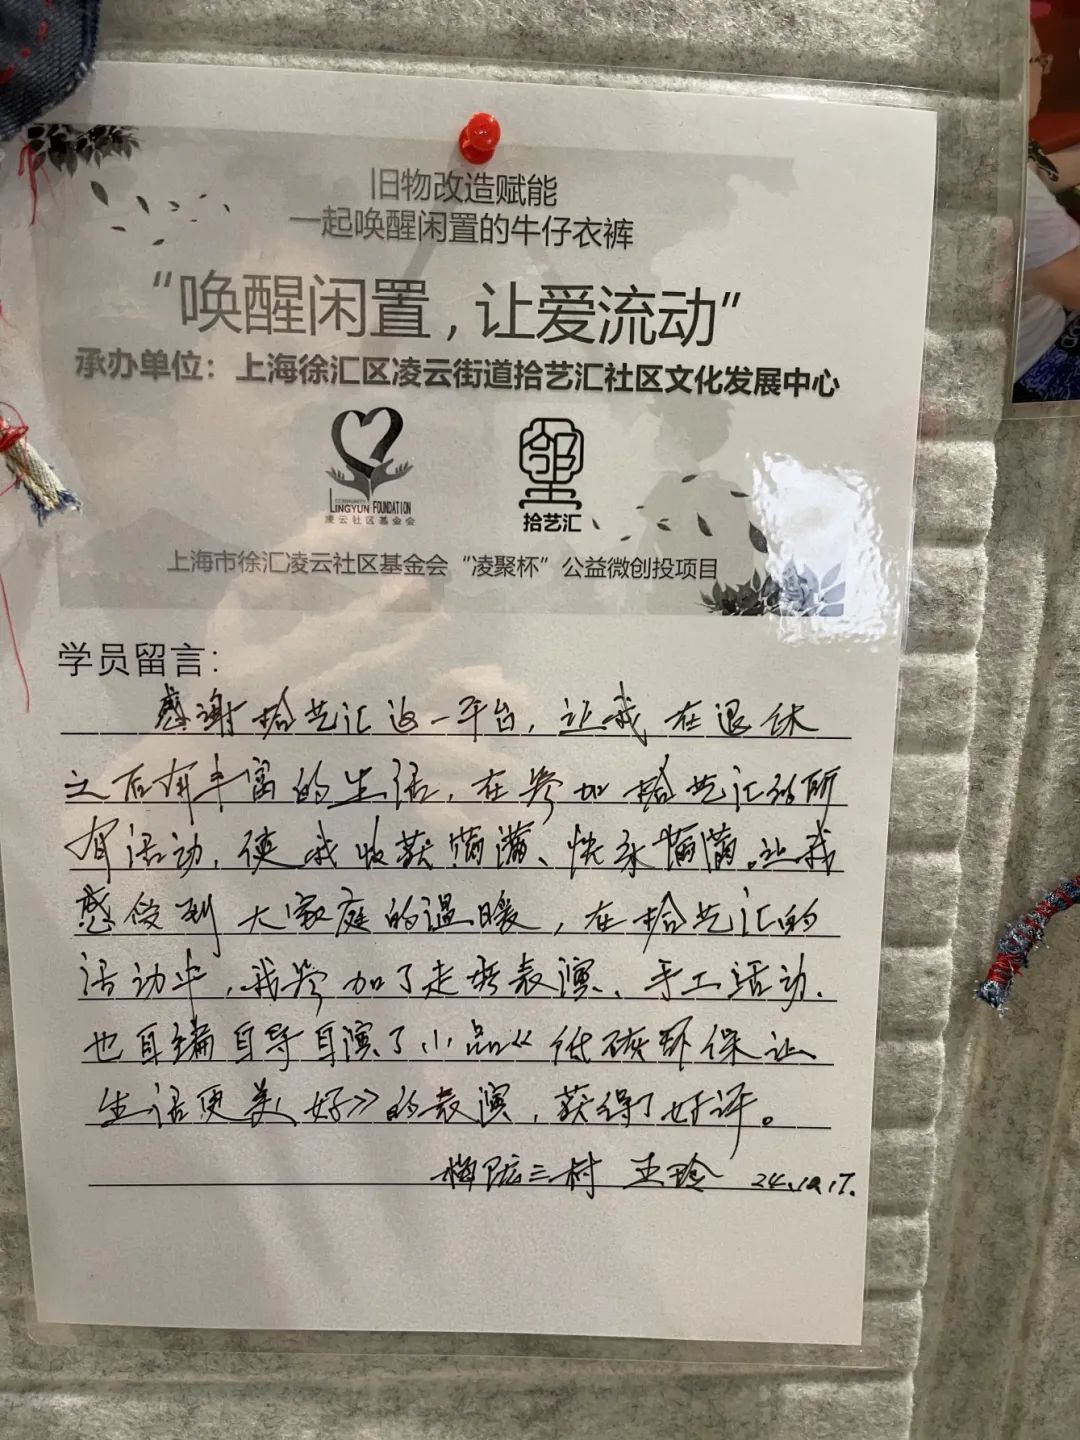 旧物改造赋能
一起唤醒闲置的牛仔衣裤
“唤醒闲置，让爱流动”
承办单位：上海徐汇区凌云街道拾艺汇社区文化发展中心
COMMUNITY
LINGYUN FOUNDATION
凌云社区基金会
拾艺汇
上海市徐汇凌云社区基金会“凌聚杯”公益微创投项目
学员留言：
感谢拾艺汇这一平台，让我在退休
之后有丰富的生活，在参加拾艺汇的所
有活动，使我收获满满、快乐满满。让我
感受到大家庭的温暖，在拾艺汇的
活动中，我参加了走秀表演、手工活动、
也自编自导自演了小品《低碳环保让
生活更美好》的表演，获得了好评。
梅陇三村 王玲 24.10.17.